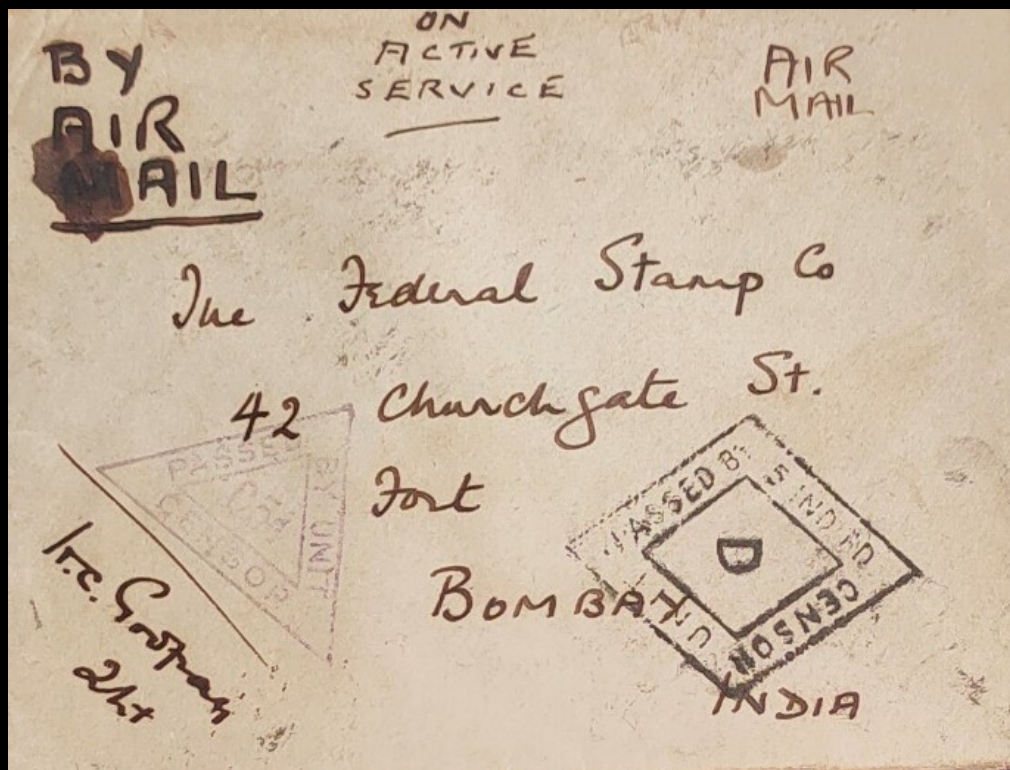 BY
AIR
MAIL
ON
ACTIVE
SERVICE
AIR
MAIL
The Federal Stamp Co
42 Churchgate St.
Fort
BOMBAY
INDIA
PASSED
BY UNIT
CENSOR
PASSED BY
CENSOR
D